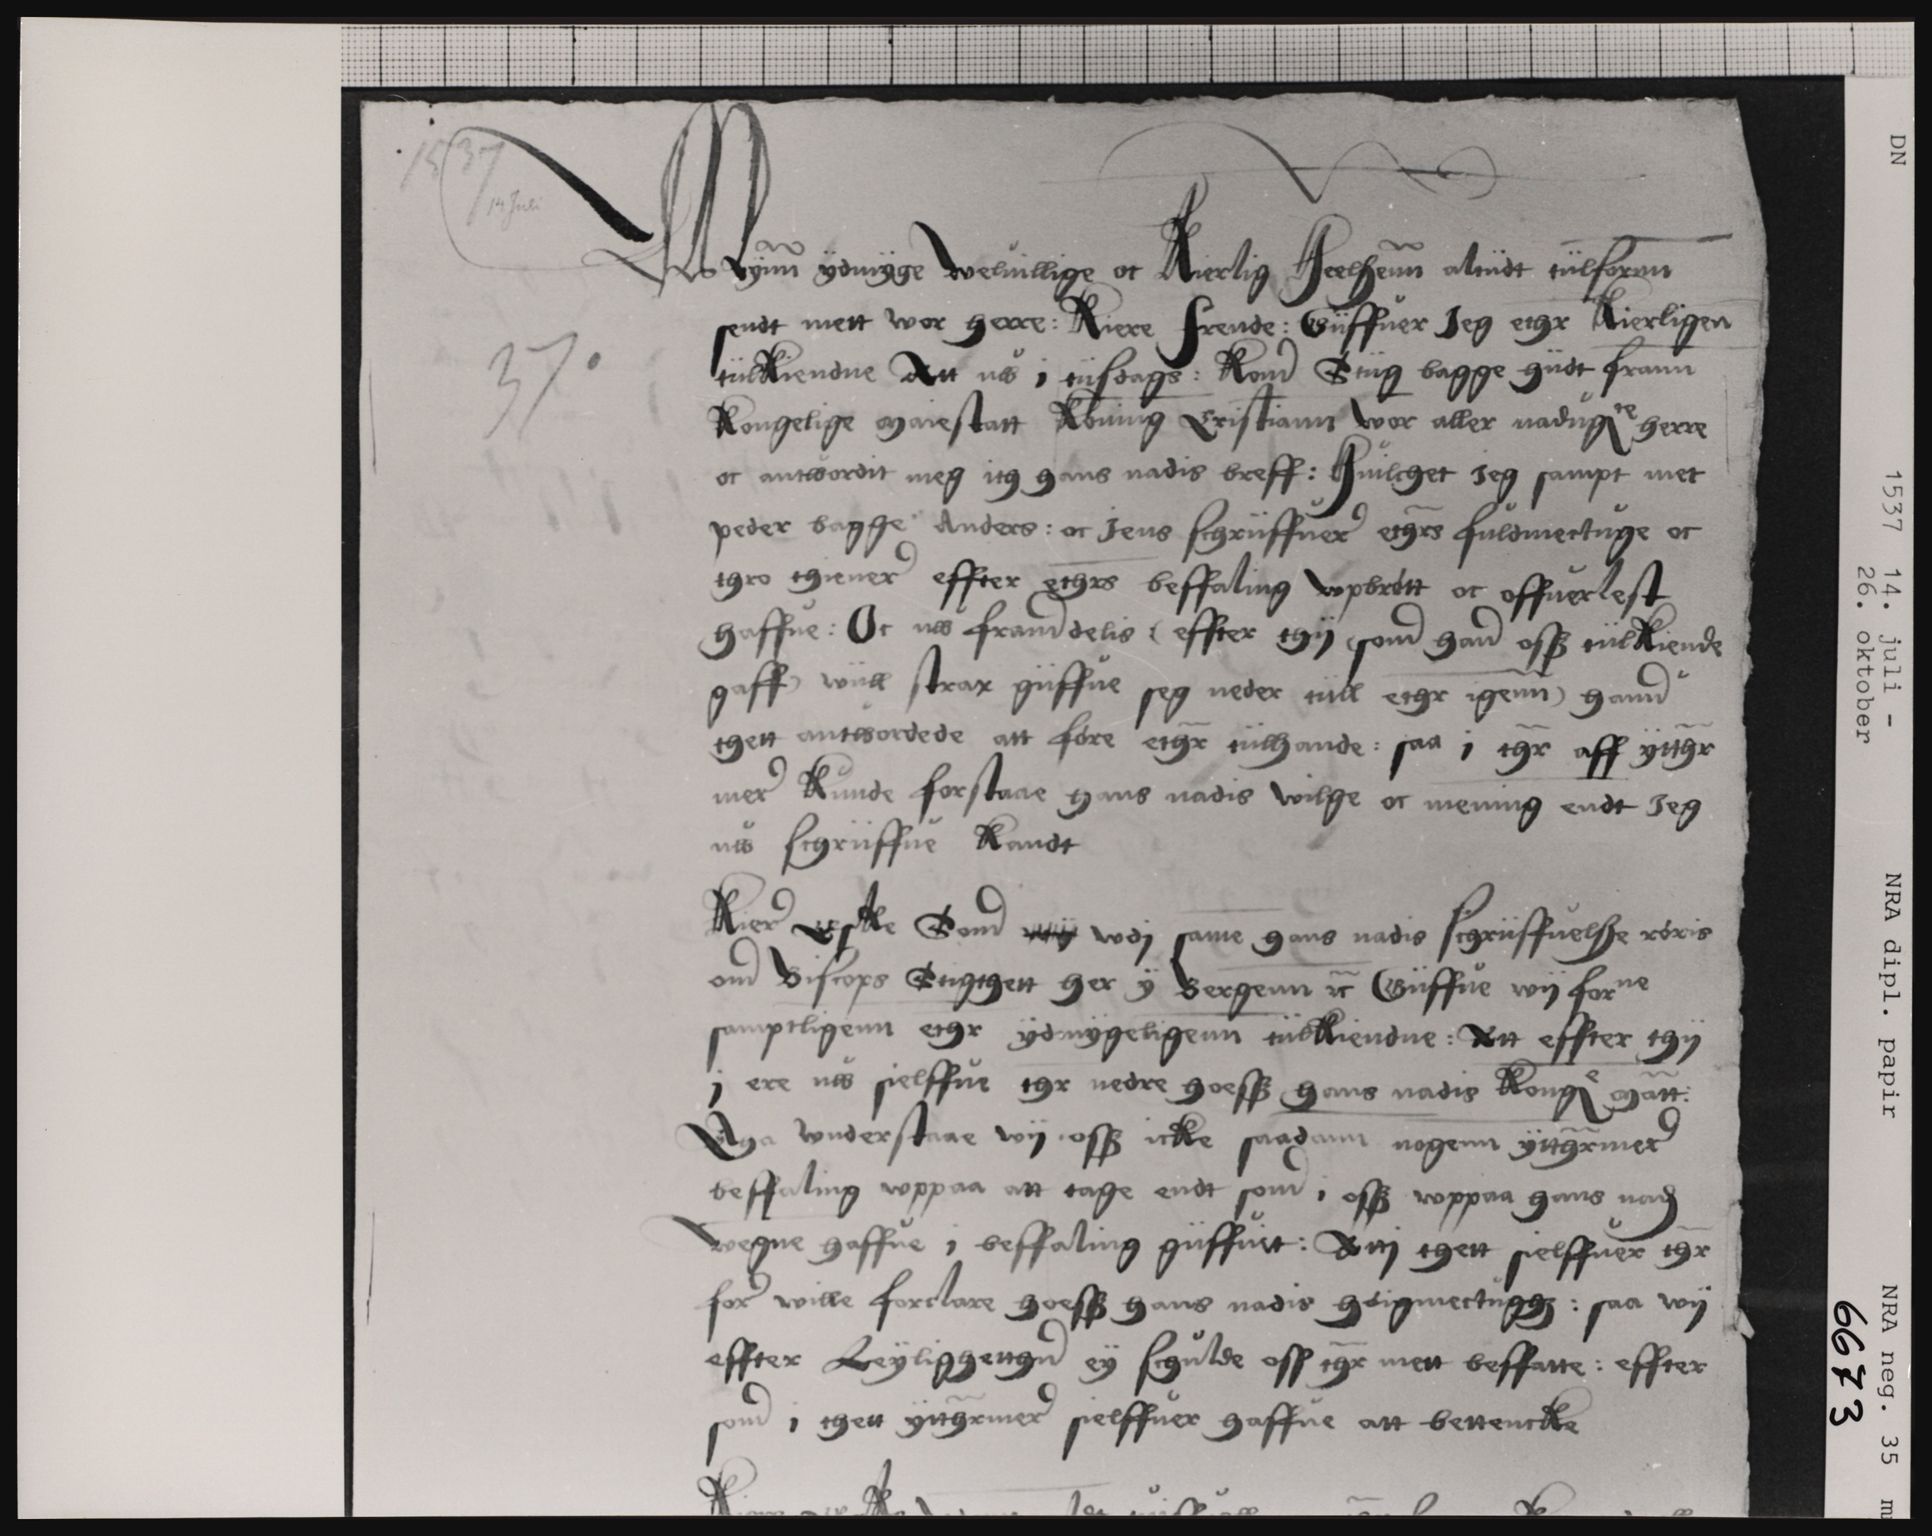 1537
14 Juli
37.
Mÿnn ÿdmÿge welwillige oc Kierlig Heelßenn altiidt tiilforon
sendt mett wor herre: Kiere frende: Giiffuer Jeg ethr Kierligen
tiilkiendne Att nw i tiisdags: Kom Stiig bagge hiidt frann
Kongelige Maiestatt Koning Cristiann wor aller nadugste herre
oc antwordit meg ith hans nadis breff: Huilchet Jeg sampt met
peder bagge Anders: oc Jens schriiffuer ethrs fuldmectuge oc
thro thiener effter ethrs beffaling wpbrott oc offuerlest
haffue: Oc nw framdelis (effter thij som han osß tiilkiende
gaff) wiill strax giiffue seg neder tiill ethr igenn) hannd
thett antwordede att føre ethr tiilhande: saa i thr aff ÿtthr
mer kunde forstaae hans nadis wilge oc mening endt Jeg
nw schriiffue kandt
Kier Eske Som wdj same hans nadis schriiffuelsße røris
om Biscops Stigthett her ÿ Bergenn etc Giiffue wij forne
samptligenn ethr ÿdmÿgeligenn tiilkiendne: Att effter thij
j ere nw sielffue thr nedre hoesß hans nadis Konge Matt:
Tha wnderstaae wij osß icke saadann nogenn ÿtthrmer
beffaling wppaa att tage endt som i osß wppaa hans nad
wegne haffue i beffaling giiffuet: Attj thett sielffuer thr
for wille forclare hoesß hans nadis høigmectug: saa wij
effter Leÿlighetthen eÿ schulde osß thr mett beffatte: effter
som i thett ÿtthrmer sielffuer haffue att bettencke
DN 1537 14. juli - 26. oktober NRA dipl. papir NRA neg. 35 m
6673